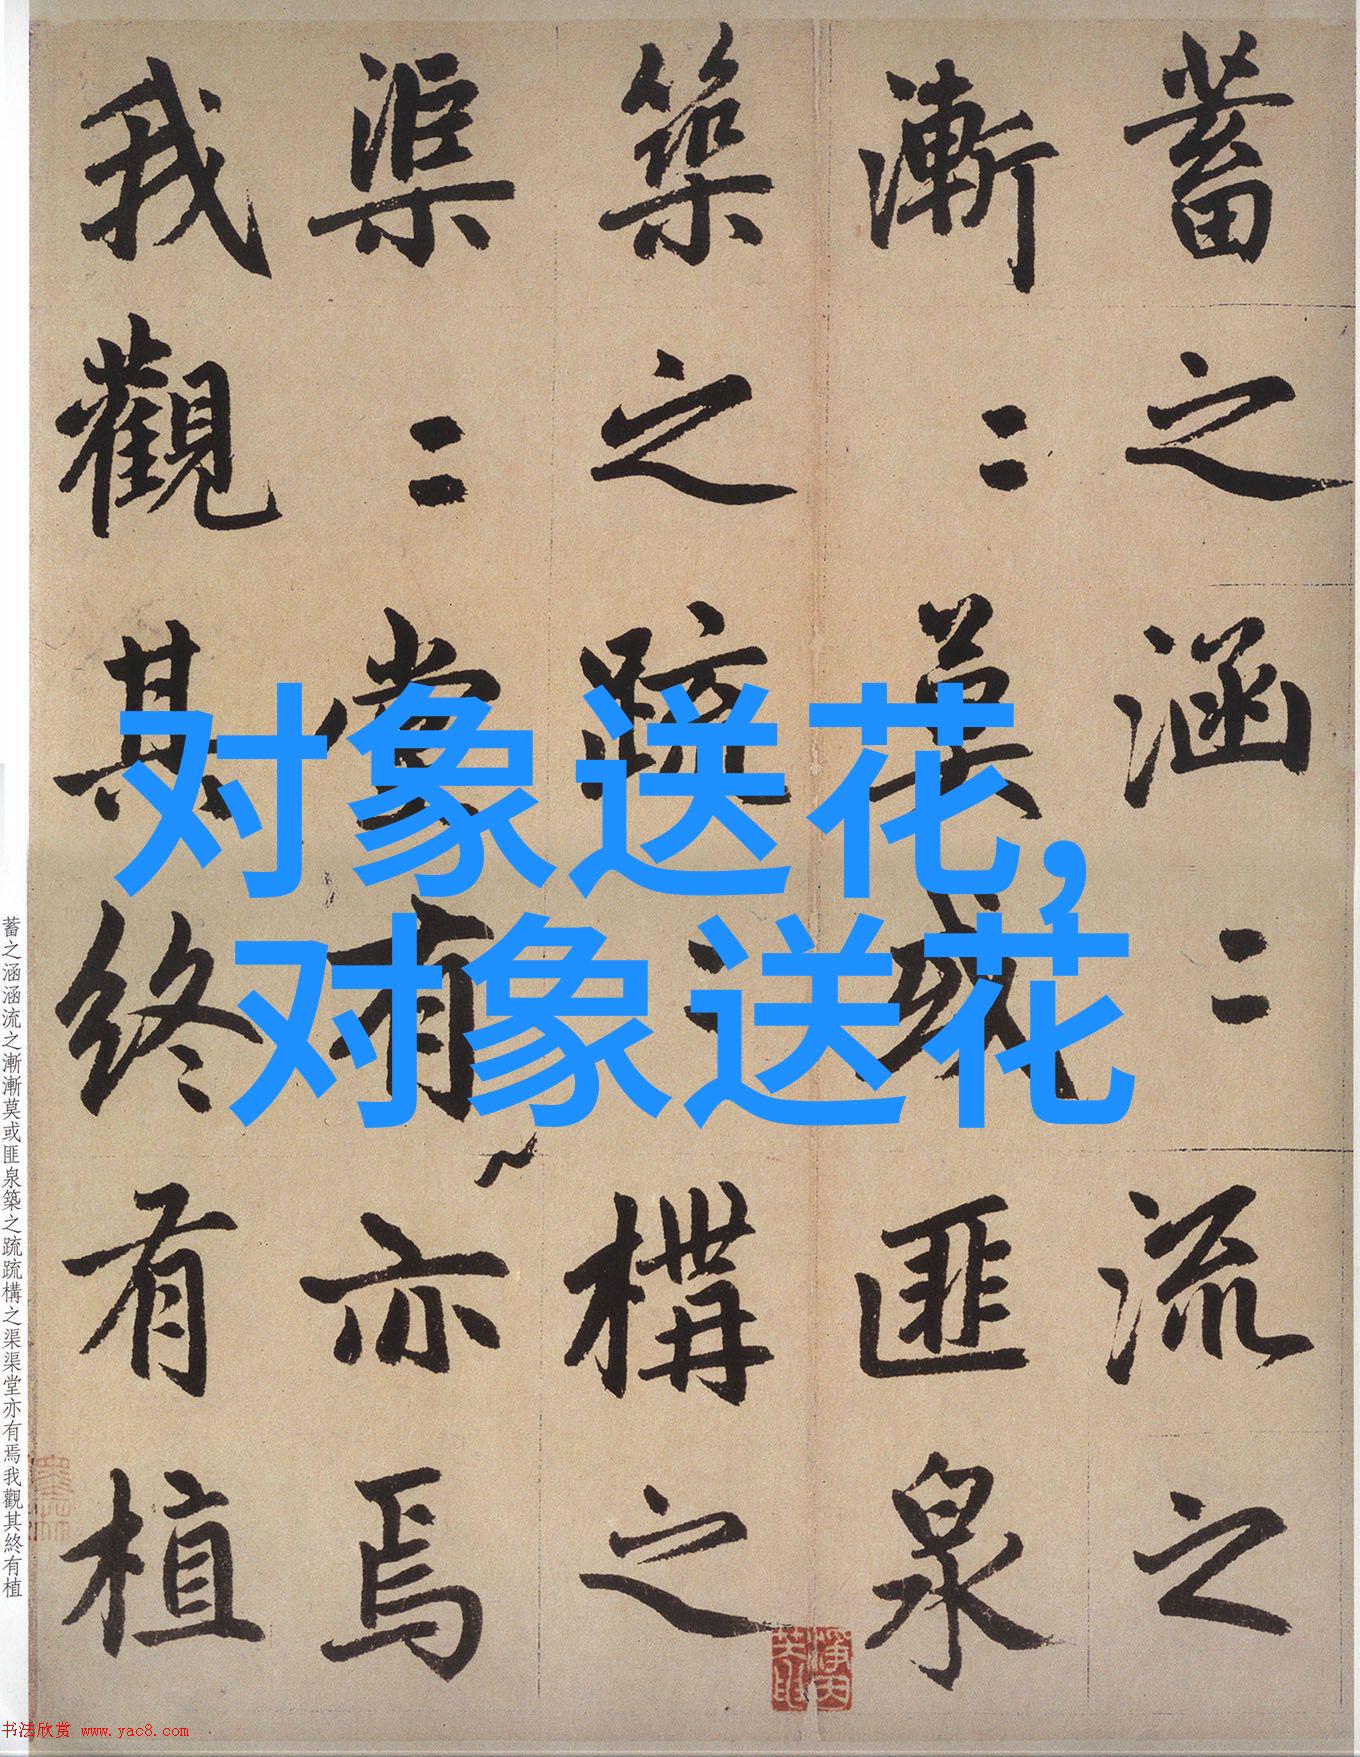 蓄之涵〻流之
漸〻莫或匪泉
築之疏〻構之
渠〻堂有亦焉
我觀其終有植
对象送花，
对象送花
蓄之涵涵流之漸漸莫或匪泉築之疏疏構之渠渠堂亦有焉我觀其終有植
书法欣赏 www.yac8.com